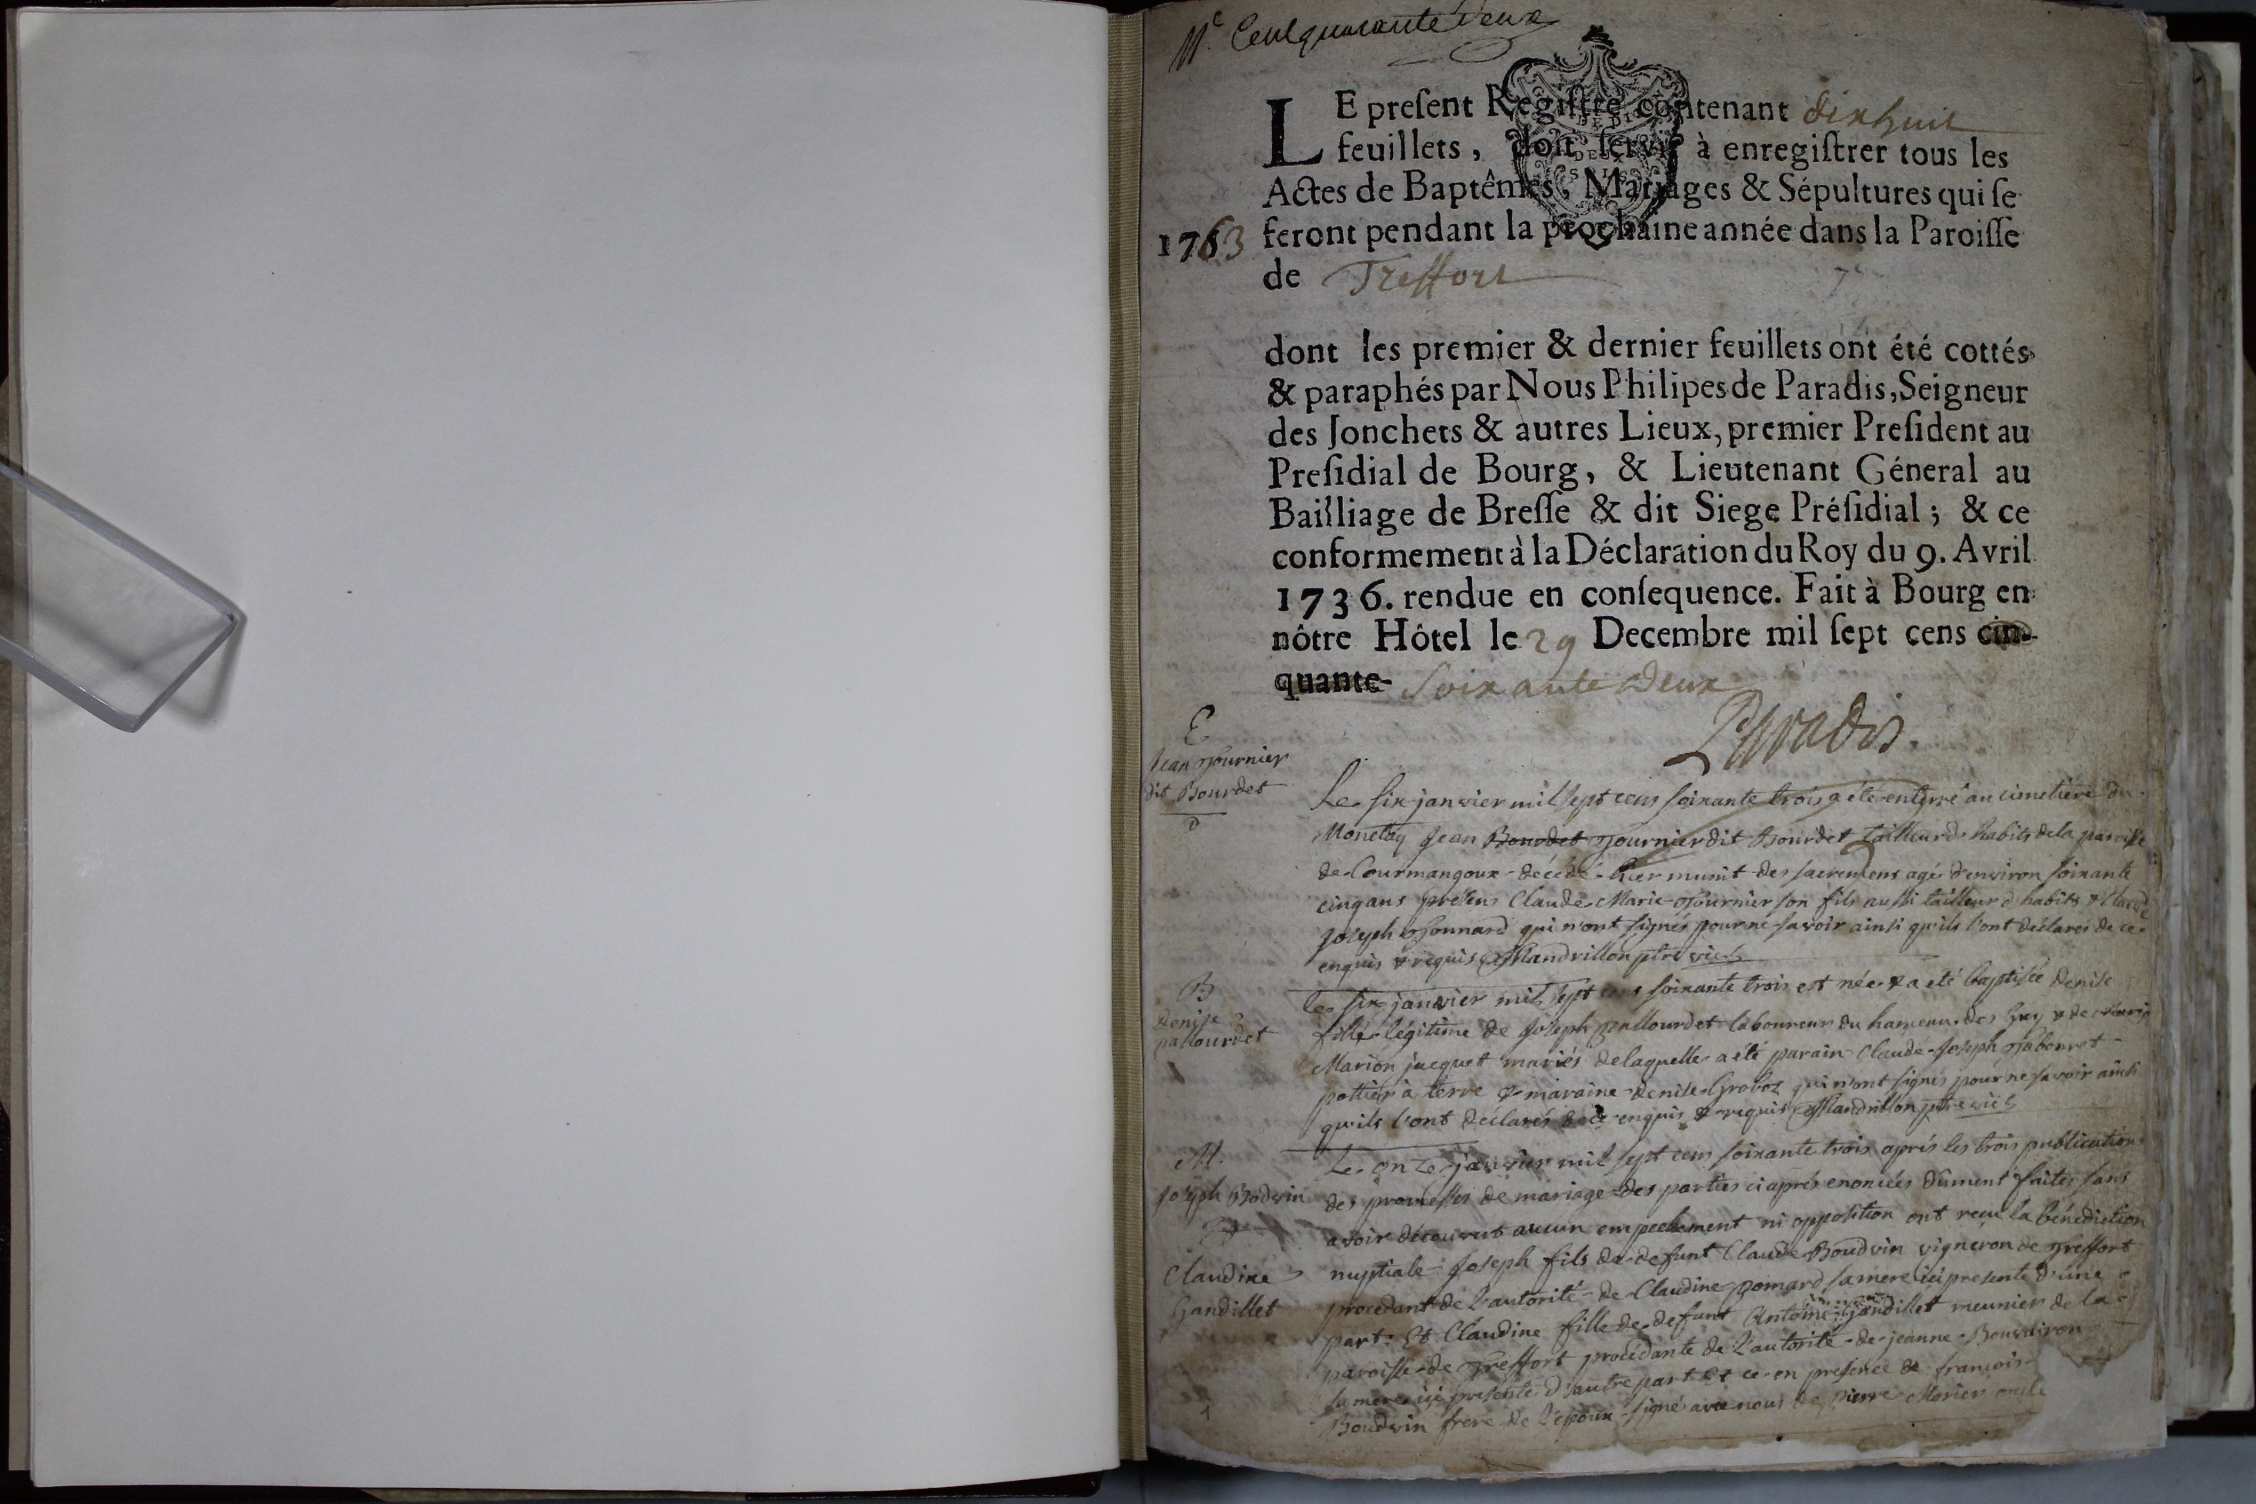 Mᵉ Centquarante Deux
LE preſent Regiſtre contenant dixhuit
feuillets, doit ſervir à enregiſtrer tous les
Actes de Baptêmes, Mariages & Sépultures qui ſe
1763 feront pendant la prochaine année dans la Paroiſſe
de Treffort
dont les premier & dernier feuillets ont été cottés
& paraphés par Nous Philipes de Paradis, Seigneur
des Jonchets & autres Lieux, premier Preſident au
Preſidial de Bourg, & Lieutenant Géneral au
Bailliage de Breſſe & dit Siege Préſidial; & ce
conformement à la Déclaration du Roy du 9. Avril
1736. rendue en conſequence. Fait à Bourg en
nôtre Hôtel le 29 Decembre mil ſept cens cin-
quante- Soixante Deux
Paradis
E
Jean Tournier
dit Bourdet
Le six janvier mil sept cens soixante trois a été enterré au cimetiére du
Monetay Jean Bourdet Tournier dit Bourdet tailleur d'habits de la paroisse
de Courmangoux décédé hier munit des sacremens agé d'environ soixante
cinq ans présens Claude Marie Tournier son fils aussi tailleur d'habits & Claude
Joseph Bonnard qui n'ont signés pour ne savoir ainsi qu'ils l'ont déclarés de ce
enquis & requis Mandrillon ptre vic.
B
denise
pallourdet
le six janvier mil sept cens soixante trois est née & a été baptisée denise
fille légitime de Joseph pallourdet laboureur du hameau des Guy & de
Marion jacquet mariés de laquelle a été parain Claude Joseph Tabouret
pottier à terre & maraine denise Groboz qui n'ont signés pour ne savoir ainsi
qu'ils l'ont déclarés de ce enquis & requis Mandrillon ptre vic.
M.
Joseph Bodvin
&
Claudine
Gandillet
Le onze janvier mil sept cens soixante trois aprés les trois publications
des promesses de mariage des parties ci aprés enoncées dument faites sans
avoir découvert aucun empechement ni opposition ont reçu la bénédiction
nuptiale Joseph fils de defunt Claude Boudvin vigneron de Treffort
procedant de l'autorité de Claudine pomard sa mere ici presente d'une
part: Et Claudine fille de defunt Antoine Gandillet meunier de la
paroisse de Treffort procédante de l'autorité de jeanne Bouvairon
sa mere ici presente d'autre part et ce en presence de françois
Boudvin frere de l'époux signé avec nous de pierre Morier oncle